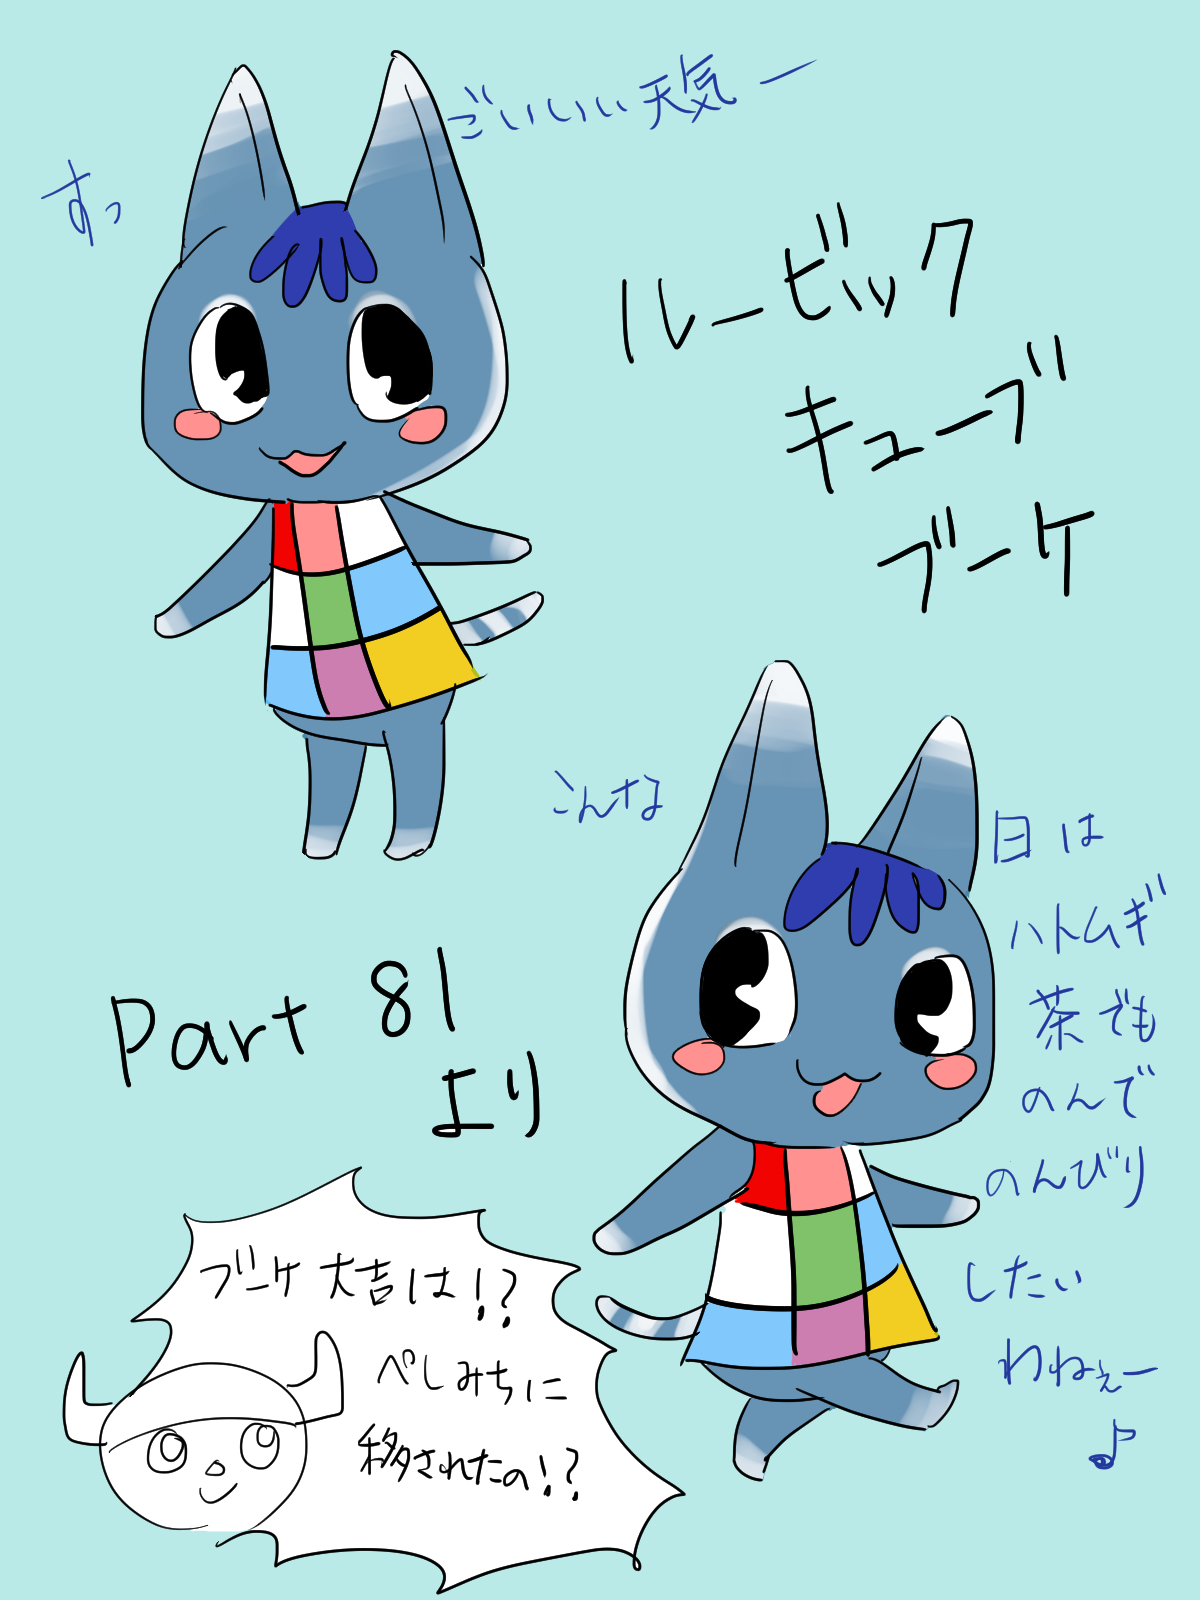 すっ
ごいいい天気ー
ルービック
キューブ
ブーケ
こんな
日は
ハトムギ
茶でも
のんで
のんびり
したい
わねぇー
♪
Part 81
より
ブーケ大吉は!?
ぺしみちに
移されたの!?